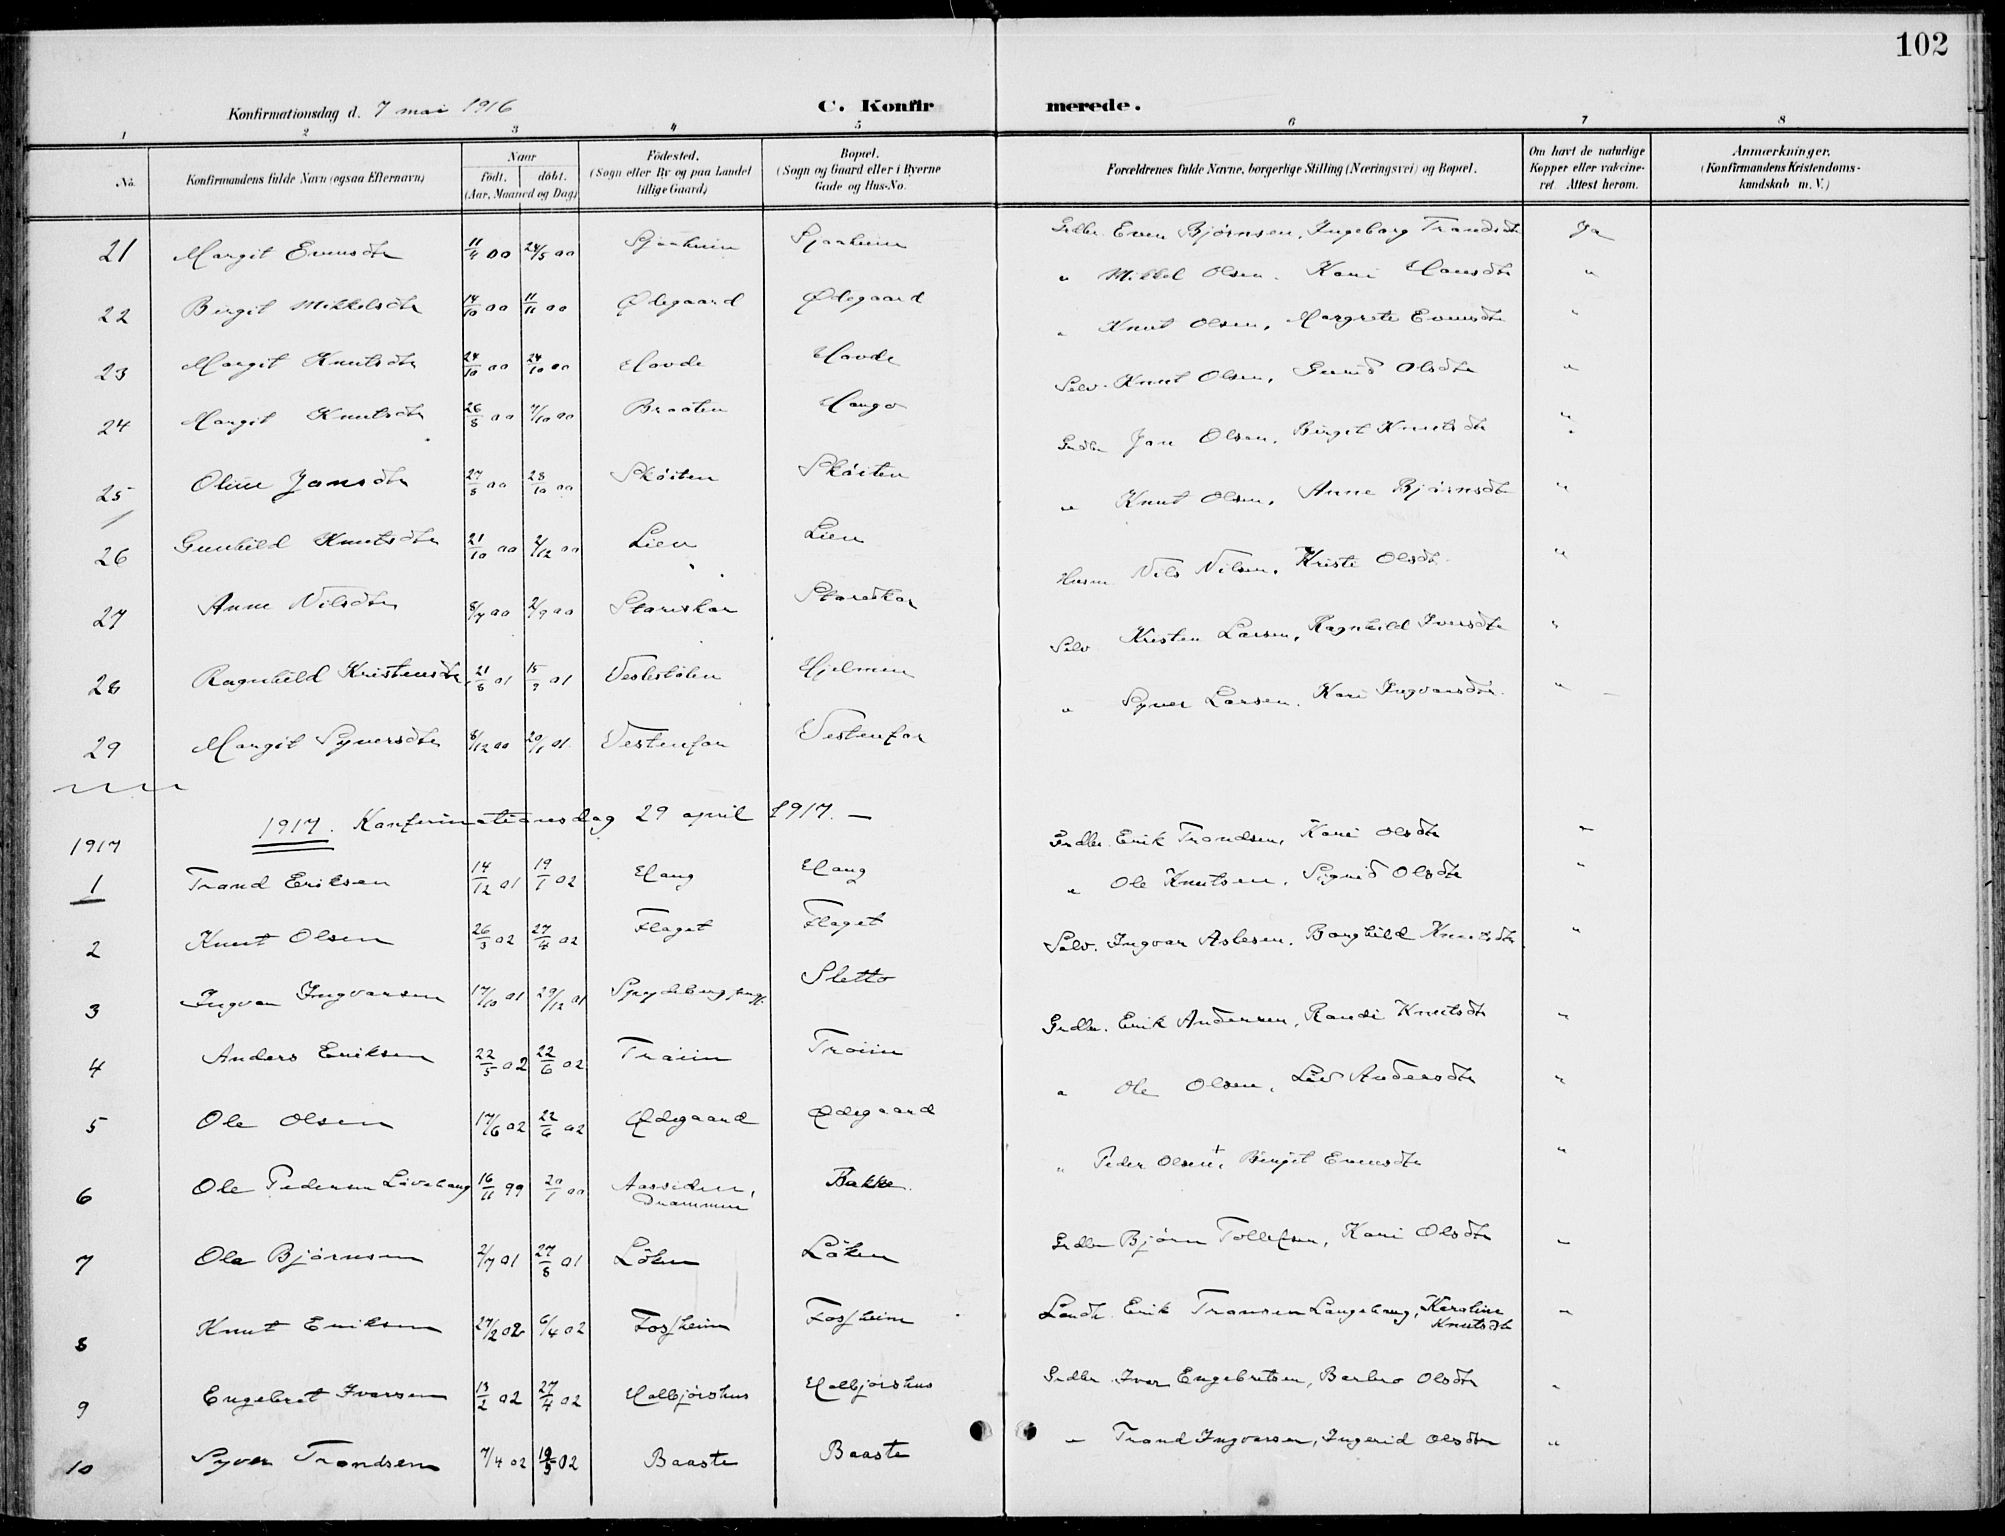 102
Konfirmationsdag d. 7 mai 1916 C. Konfirmerede.
1 2 3 4 5 6 7 8
No. Konfirmandens fulde Navn (ogsaa Efternavn) Naar født. døbt. (Aar, Maaned og Dag) Fødested. (Sogn eller By og paa Landet tillige Gaard) Bopæl. (Sogn og Gaard eller i Byerne Gade og Hus-No. Forældrenes fulde Navne, borgerlige Stilling (Næringsvei) og Bopæl. Om havt de naturlige Kopper eller vakcineret. Attest herom. Anmærkninger. (Konfirmandens Kristendomskundskab m. V.)
21 Margit Evensdtr 11/4 00 24/5 00 Sjaaheim Sjaaheim Grdbr. Even Björnsen, Ingeborg Trondsdtr Ja
22 Birgit Mikkelsdtr 14/10 00 11/11 00 Ødegaard Ødegaard " Mikkel Olsen. Kari Hansdtr "
23 Margit Knutsdtr 24/10 00 Hovde Hovde " Knut Olsen, Margrete Evensdtr "
24 Margit Knutsdtr 26/8 00 7/10 00 Braaten Selv. Knut Olsen, Gurid Olsdtr "
25 Oline Jonsdtr 27/8 00 28/10 00 Sköiten Sköiten Grdbr Jon Olsen, Birgit Knutsdtr "
26 Gunhild Knutsdtr 21/10 00 2/12 00 Lien Lien " Knut Olsen, Anne Björnsdtr "
27 Anne Nilsdtr 8/7 00 2/9 00 Storeskar Storeskar Husm Nils Nilsen, Kristi Olsdtr "
28 Ragnhild Kristensdtr 21/8 01 15/9 01 Veslestölen Hjelmen Selv Kristen Larsen, Ragnhild Iversdtr "
29 Margit Syversdtr 8/12 00 20/1 01 Vestenfor Vestenfor " Syver Larsen. Kari Ingvarsdtr. "
1917 1917. Konfirmationsdag 29 april 1917. —
1 Trond Eriksen 14/12 01 19/1 02 Haug Haug Grdbr. Erik Trondsen, Kari Olsdtr "
2 Knut Olsen 26/3 02 27/4 02 Flaget Flaget " Ole Knutsen, Sigrid Olsdtr "
3 Ingvar Ingvarsen 17/10 01 29/12 01 Sletto Selv. Ingvar Aslesen, Borghild Knutsdtr "
4 Anders Eriksen 22/5 02 22/6 02 Tröiin Tröiin Grdbr. Erik Andersen, Randi Knutsdtr "
5 Ole Olsen 17/6 02 22/6 02 Ødegaard Ødegaard " Ole Olsen, Liv Andersdtr "
6 Ole Pedersen 16/11 99 20/1 00 Aassiden, Drammen Bakke. " Peder Olsen+, Birgit Evensdtr "
7 Ola Björnsen 2/7 01 27/8 01 Löken Löken Grdbr Björn Tollefsen, Kari Olsdtr "
8 Knut Eriksen 27/2 02 6/4 02 Fosheim Fosheim Landh. Erik Tronsen Langehaug, Karoline Knutsdtr "
9 Engebret Iversen 13/2 02 27/4 02 Halbjörshus Halbjörshus Grdbr Iver Engebretsen, Barbro Olsdtr "
10 Syver Trondsen 7/4 02 19/5 02 Baaste Baaste " Trond Ingvarsen, Ingerid Olsdtr "